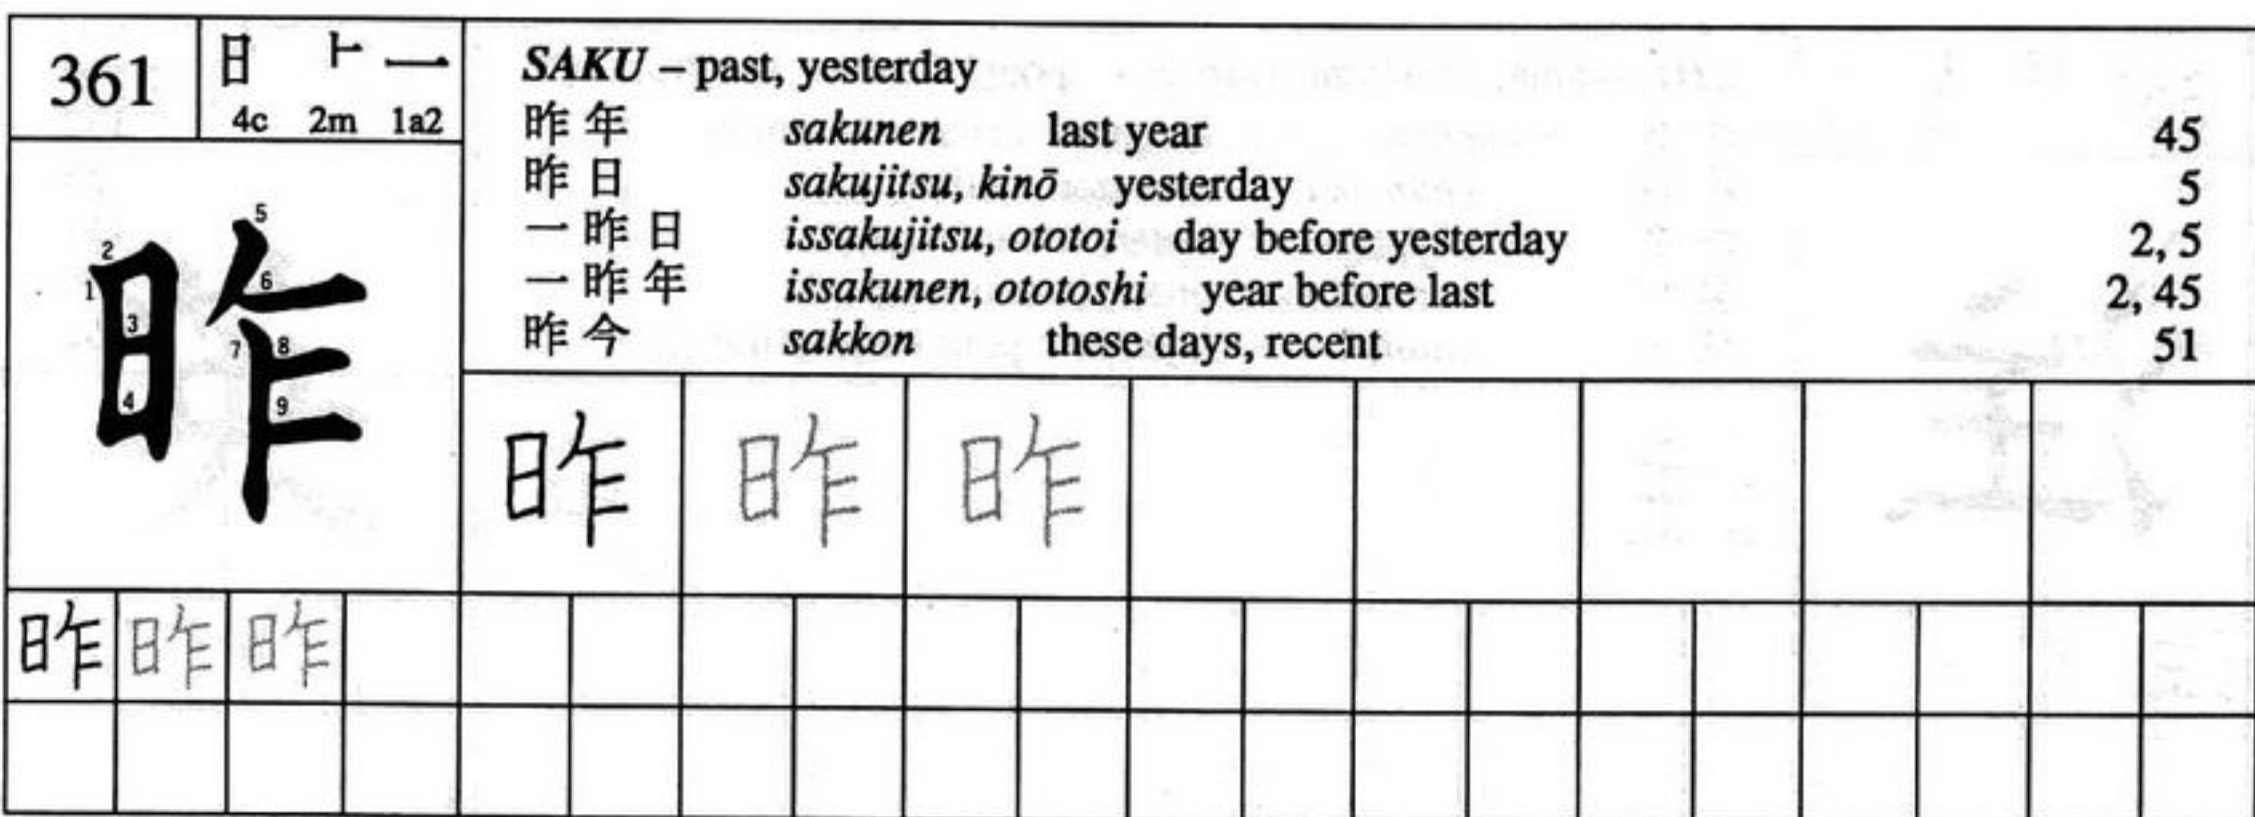 361
日 ⺊ 一
4c 2m 1a2
SAKU – past, yesterday
昨年 sakunen last year 45
昨日 sakujitsu, kinō yesterday 5
一昨日 issakujitsu, ototoi day before yesterday 2, 5
一昨年 issakunen, ototoshi year before last 2, 45
昨今 sakkon these days, recent 51
昨
1 2 3 4 5 6 7 8 9
昨 昨 昨
昨 昨 昨